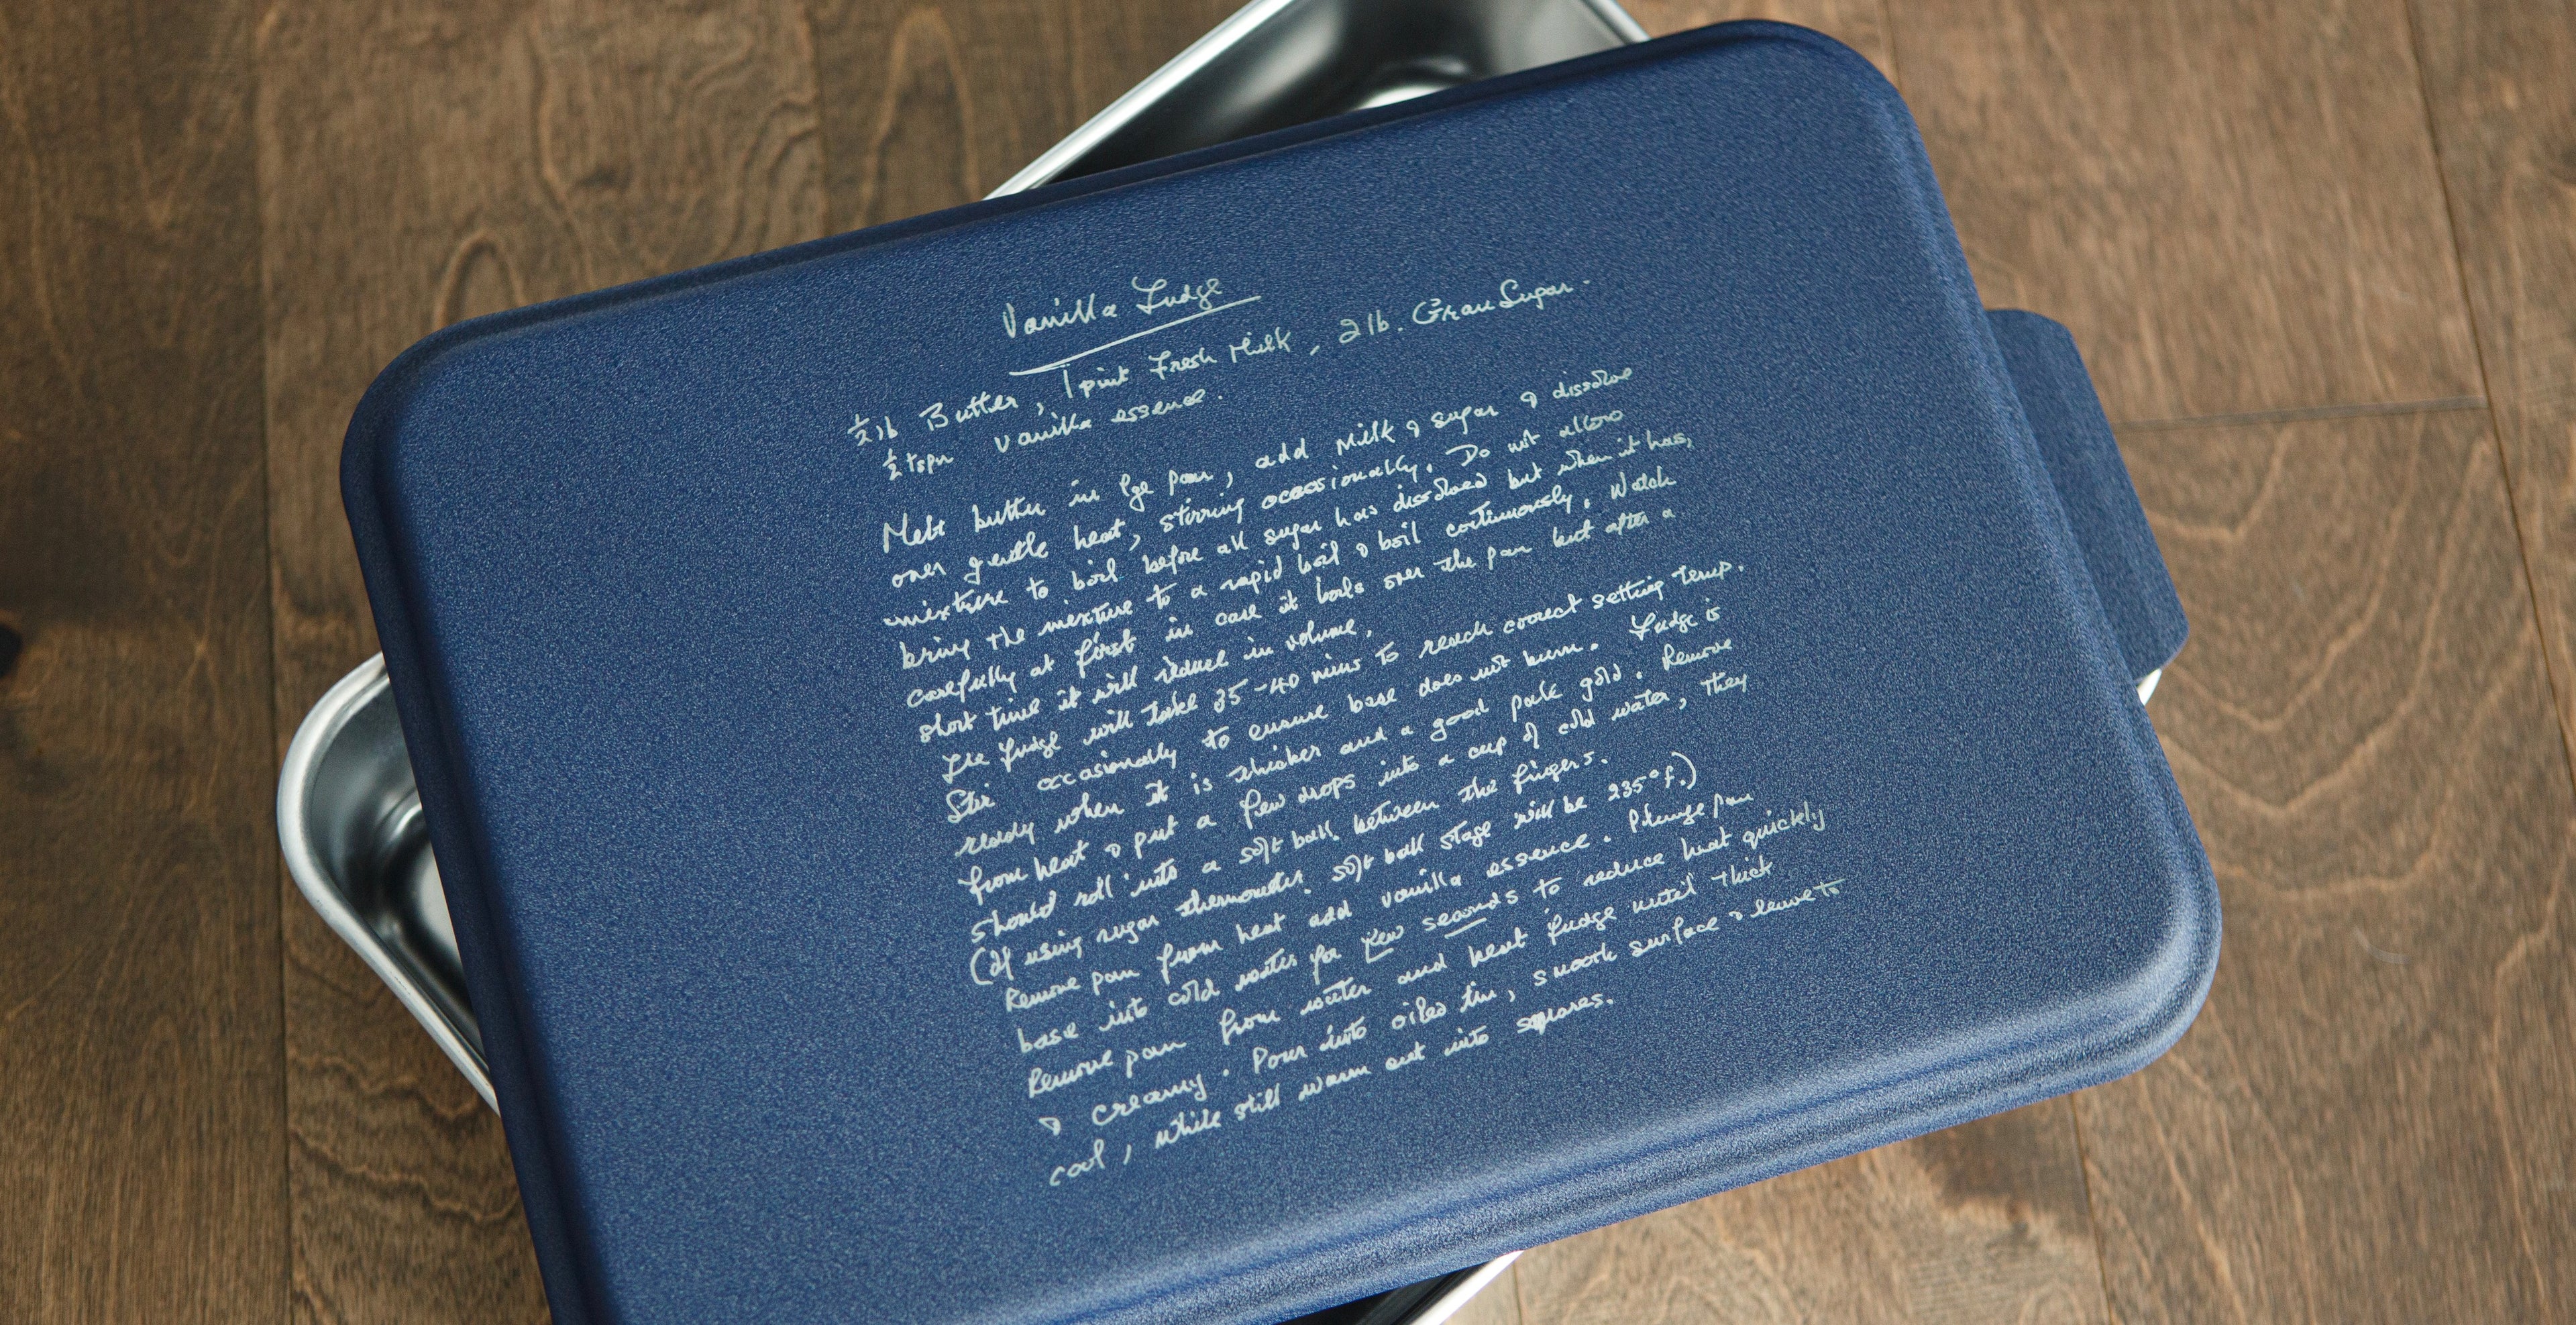 Vanilla Fudge
½ lb Butter, 1 pint Fresh Milk, 2 lb. Gran Sugar.
½ tspn Vanilla essence.
Melt butter in lge pan, add milk & sugar & dissolve
over gentle heat, stirring occassionally. Do not allow
mixture to boil before all sugar has dissolved but when it has,
bring the mixture to a rapid boil & boil continuously. Watch
carefully at first in case it boils over the pan but after a
short time it will reduce in volume.
The fudge will take 35-40 mins to reach correct setting temp.
Stir occasionally to ensure base does not burn. Fudge is
ready when it is thicker and a good pale gold. Remove
from heat & put a few drops into a cup of cold water, they
should roll into a soft ball between the fingers.
(If using sugar thermometer, soft ball stage will be 235°f.)
Remove pan from heat add vanilla essence. Plunge pan
base into cold water for few seconds to reduce heat quickly
Remove pan from water and beat fudge until thick
& creamy. Pour into oiled tin, smooth surface & leave to
cool, while still warm cut into squares.